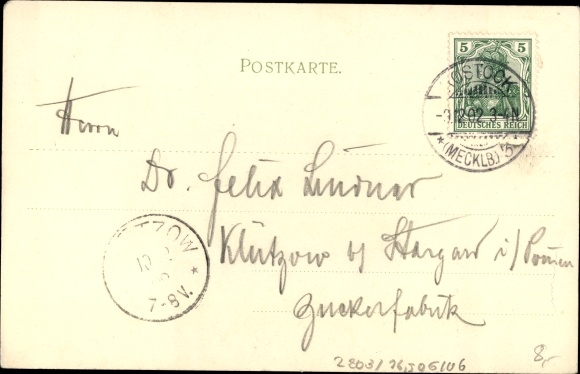 POSTKARTE.
5 5
DEUTSCHES REICH
ROSTOCK
12.02 3-4N
* (MECKLB.) 5 *
Herrn
Dr. Felix Lindner
Klützow b/ Stargard i/Pomm
Zuckerfabrik
TZOW *
7-8V.
8,-